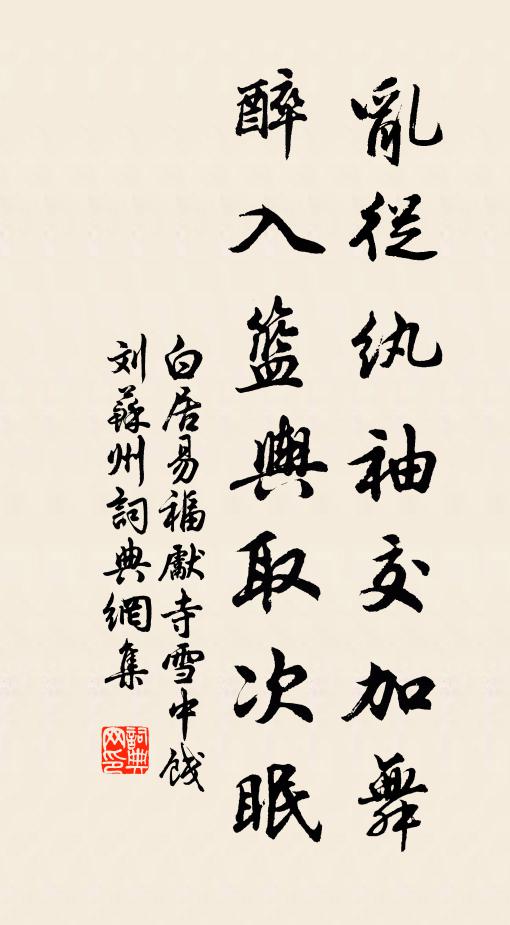 亂從紈袖交加舞
醉入籃輿取次眠
白居易福獻寺雪中餞
刘蘇州詞典網集
詞典
网印